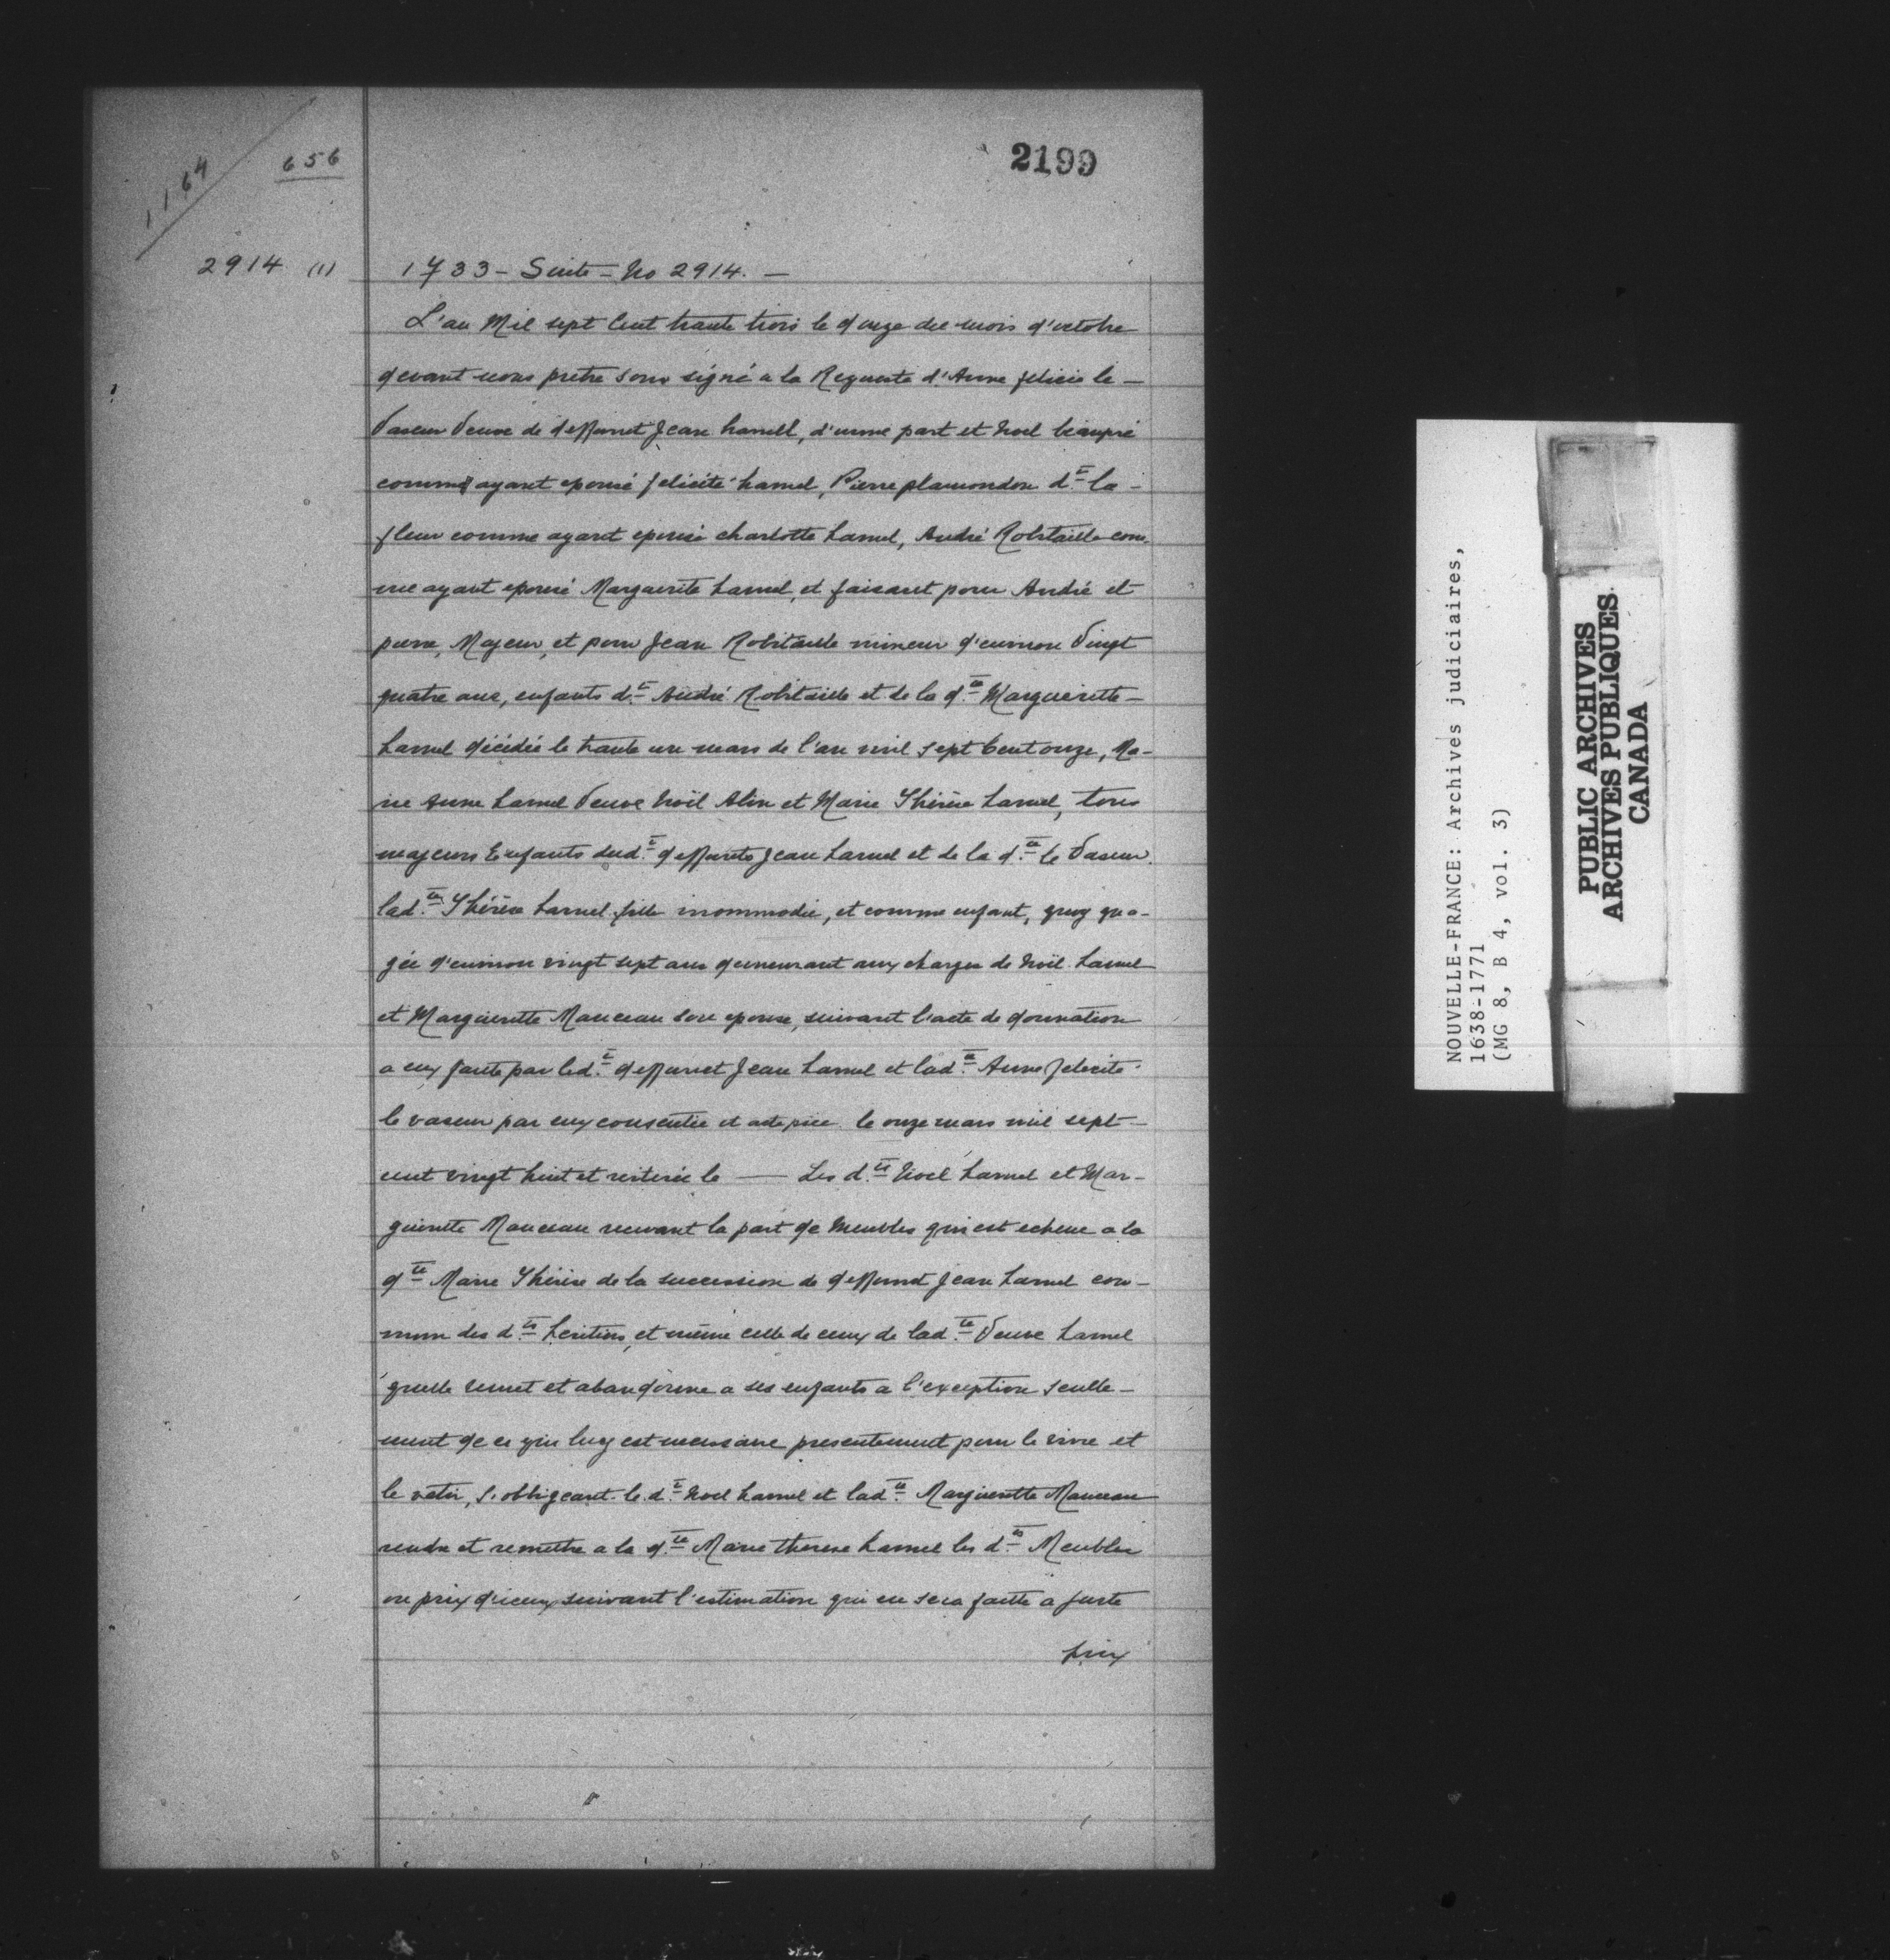 1164
656
2199
2914 (1)
1733 - Suite - No 2914. —
L'an Mil sept Cent trante trois le douze du mois d'octobre
devant nous pretre sous signé a la Requeste d'Anne felicité le -
Vaseur Veuve de deffunct Jean hamell, d'unne part et Noel beaupré
comme ayant epousé felicité hamel, Pierre plamondon dt la -
fleur comme ayant epousé charlotte hamel, André Robitaille com-
me ayant epousé Marguerite hamel, et faisant pour André et
pierre, Majeur, et pour Jean Robitaille mineur d'environ Vingt
quatre ans, enfants dt André Robitaille et de la dte Marguerite -
hamel décédée le trante un mars de l'an mil sept Cent onze, Ma-
rie Anne hamel Veuve Noël Alin et Marie Thérèse hamel, tous
majeurs Enfants dudt deffuncts Jean hamel et de la dte le Vaseur.
ladte Thérèse hamel fille inommodée, et comme enfant, quoy qu'a-
gée d'environ vingt sept ans demeurant aux charges de Noël hamel
et Marguerite Manceau son epouse, suivant l'acte de donnation
a eux faite par ledt deffunct Jean hamel et ladte Anne felicité
le vaseur par eux consentie et acte prie le onze mars mil sept -
cent vingt huit et reiterée le — Les dts Noel hamel et Mar-
guerite Manceau recevant la part de Meubles qui est echeue a la
dte Marie Thérèse de la succession de deffunct Jean hamel com-
mun des dts heritiers, et même celle de ceux de ladte Veuve hamel
quelle remet et abandonne a ses enfants a l'exception seulle-
ment de ce qui luy est necessaire presentement pour le vivre et
le vetir, s'obligeant le dt Noel hamel et ladte Marguerite Manceau
rendre et remettre a la dte Marie therese hamel les dts Meubles
ou prix d'iceux suivant l'estimation qui en sera faitte a juste
prix
NOUVELLE-FRANCE: Archives judiciaires,
1638-1771
(MG 8, B 4, vol. 3)
PUBLIC ARCHIVES
ARCHIVES PUBLIQUES
CANADA